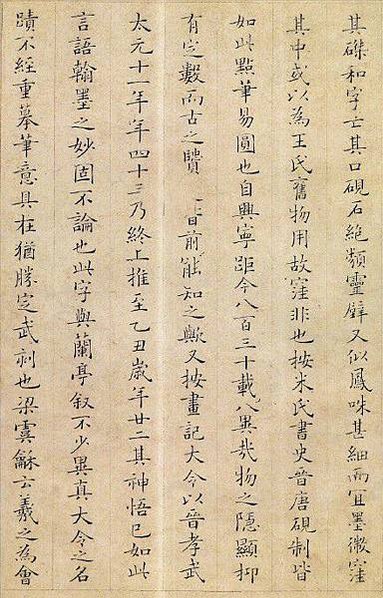 其磔和字亡其口硯石絶類靈璧又似鳳咮甚細而宜墨微窪
其中或以為王氏舊物用故窪非也按米氏書史晉唐硯制皆
如此點筆易圓也自興寧距今八百三十載八異哉物之隱顯抑
有定數而古之 前能知之歟又按畫記大令以晉孝武
太元十一年年四十三乃終上推至乙丑歲年廿二其神悟已如此
言語翰墨之妙固不論也此字與蘭亭叙不少異真大令之名
蹟不經重摹筆意具在猶勝定武刻也梁虞龢云羲之為會